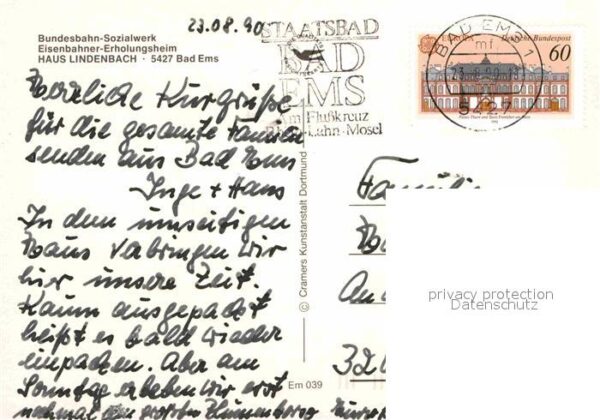 23.08.90
Bundesbahn-Sozialwerk
Eisenbahner-Erholungsheim
HAUS LINDENBACH · 5427 Bad Ems
STAATSBAD
BAD
EMS
Am Flußkreuz
Rhein-Lahn-Mosel
BAD EMS 1
5427
Deutsche Bundespost
60
Herzliche Kurgrüße
für die gesamte Familie
senden aus Bad Ems
Inge + Hans
In dem umseitigen
Haus verbringen wir
hier unsere Zeit.
Kaum ausgepackt
heißt es bald wieder
einpacken. Aber am
Sonntag erleben wir erst
nochmal den großen Blumenkorso
© Cramers Kunstanstalt Dortmund
Em 039
Familie
An
privacy protection
Datenschutz